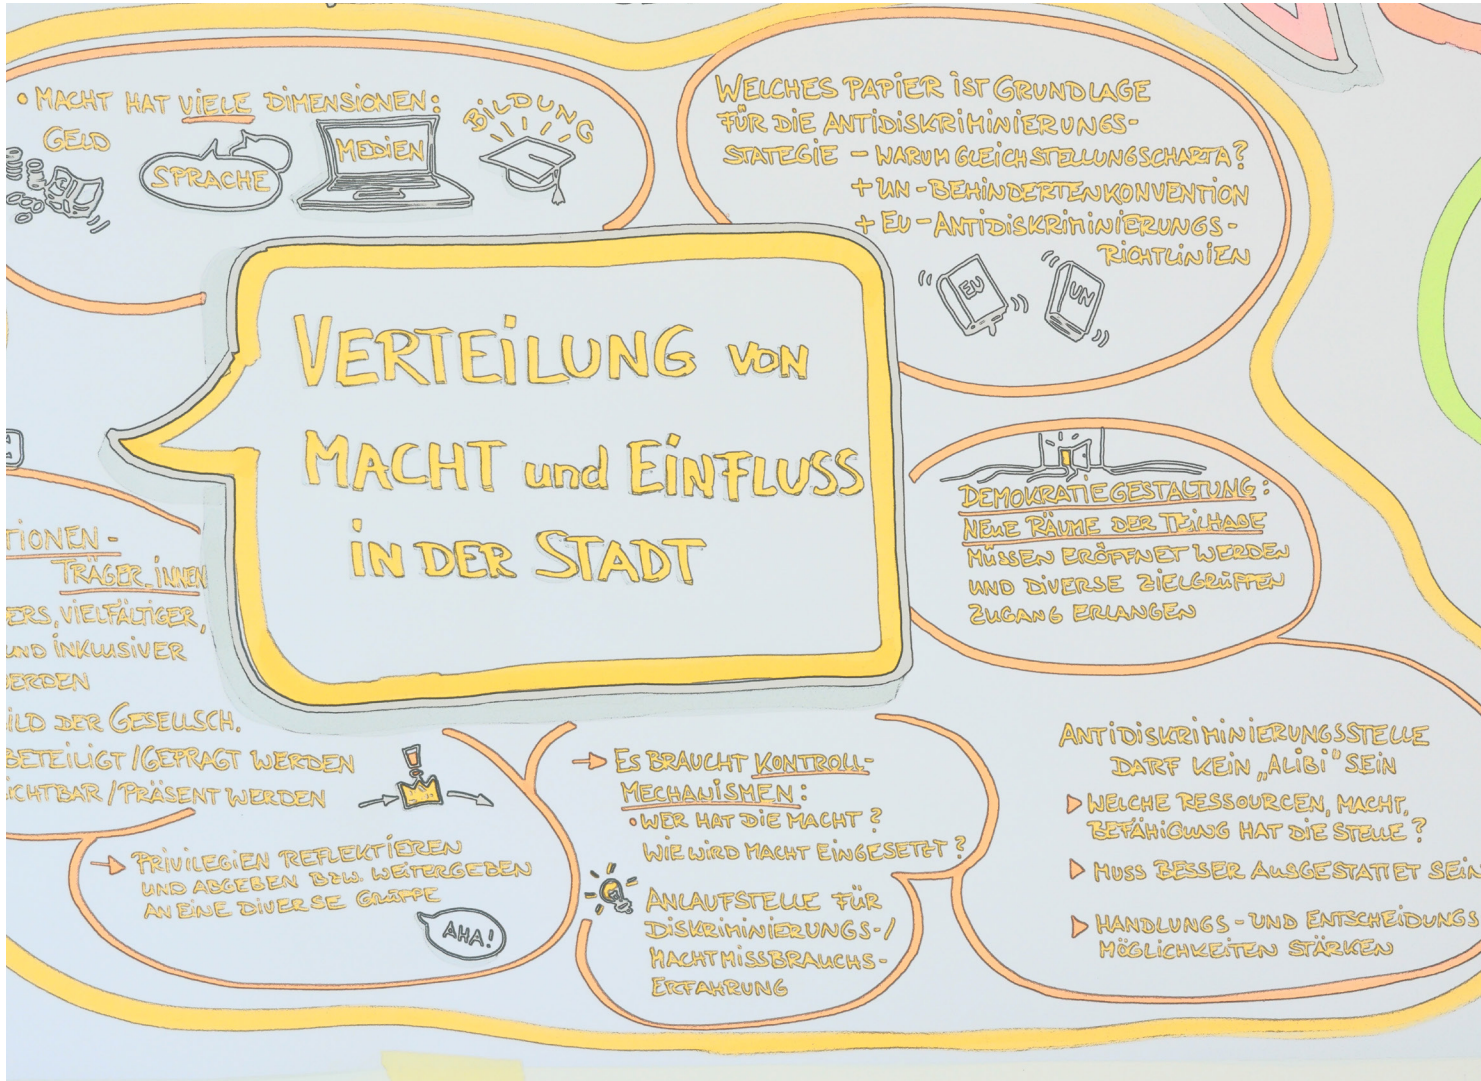 • MACHT HAT VIELE DIMENSIONEN:
GELD
SPRACHE
MEDIEN
BILDUNG
WELCHES PAPIER IST GRUNDLAGE
FÜR DIE ANTIDISKRIMINIERUNGS-
STATEGIE – WARUM GLEICHSTELLUNGSCHARTA?
+ UN-BEHINDERTENKONVENTION
+ EU-ANTIDISKRIMINIERUNGS-
RICHTLINIEN
EU
UN
VERTEILUNG VON
MACHT und EINFLUSS
IN DER STADT
DEMOKRATIEGESTALTUNG:
NEUE RÄUME DER TEILHABE
MÜSSEN ERÖFFNET WERDEN
UND DIVERSE ZIELGRUPPEN
ZUGANG ERLANGEN
TIONEN-
TRÄGER.INNEN
ERS, VIELFÄLTIGER,
UND INKLUSIVER
ERDEN
ILD DER GESELLSCH.
BETEILIGT/GEPRÄGT WERDEN
ICHTBAR/PRÄSENT WERDEN
→ PRIVILEGIEN REFLEKTIEREN
UND ABGEBEN BZW. WEITERGEBEN
AN EINE DIVERSE GRUPPE
AHA!
→ ES BRAUCHT KONTROLL-
MECHANISMEN:
• WER HAT DIE MACHT?
WIE WIRD MACHT EINGESETZT?
ANLAUFSTELLE FÜR
DISKRIMINIERUNGS-/
MACHTMISSBRAUCHS-
ERFAHRUNG
ANTIDISKRIMINIERUNGSSTELLE
DARF KEIN „ALIBI" SEIN
▷ WELCHE RESSOURCEN, MACHT,
BEFÄHIGUNG HAT DIE STELLE?
▷ MUSS BESSER AUSGESTATTET SEIN
▷ HANDLUNGS- UND ENTSCHEIDUNGS
MÖGLICHKEITEN STÄRKEN